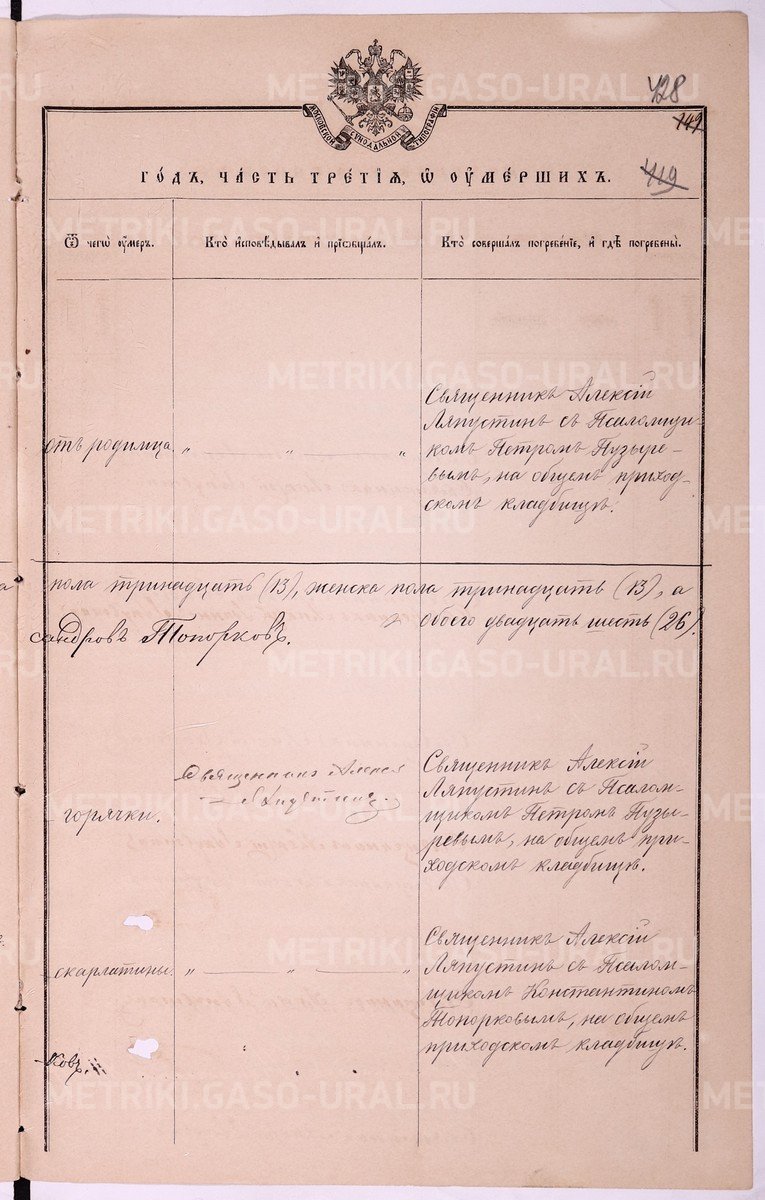 428
149
419
МОСКОВСКОЙ СѴНОДАЛЬНОЙ ТИПОГРАФІИ
ГО́ДЪ, ЧА́СТЬ ТРЕ́ТІЯ, Ѡ҆ ОУ҆МЕ́РШИХЪ.
Ѿ чегѡ̀ оу҆́меръ.
Кто̀ и҆сповѣ́дывалъ и҆ прїѡбща́лъ.
Кто̀ соверша́лъ погребе́нїе, и҆ гдѣ̀ погребены̀.
отъ родимца.
„ — „ — „
Священникъ Алексій
Ляпустинъ съ Псаломщи-
комъ Петромъ Пузыре-
вымъ, на общемъ приход-
скомъ кладбищѣ.
пола тринадцать (13), женска пола тринадцать (13), а
обоего двадцать шесть (26).
сандровъ Топорковъ.
горячки.
Священникъ Алексѣй
Ляпустинъ.
Священникъ Алексій
Ляпустинъ съ Псалом-
щикомъ Петромъ Пузы-
ревымъ, на общемъ при-
ходскомъ кладбищѣ.
скарлатины.
„ — „ — „
Священникъ Алексій
Ляпустинъ съ Псалом-
щикомъ Константиномъ
Топорковымъ, на общемъ
приходскомъ кладбищѣ.
ковъ.
METRIKI.GASO-URAL.RU